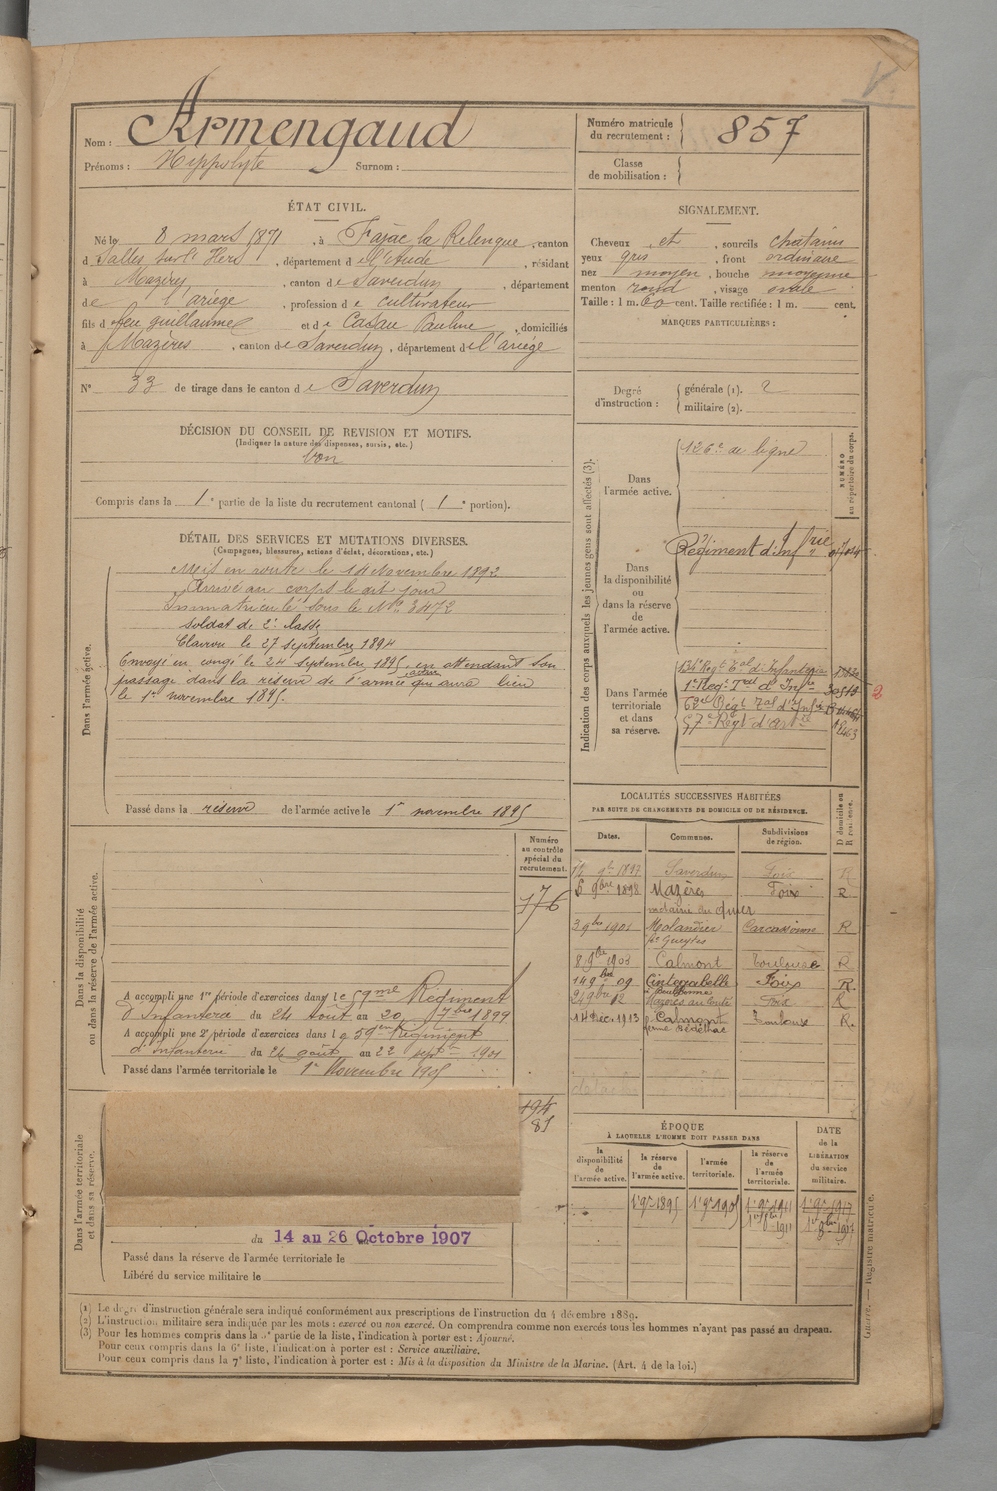 Nom : Armengaud
Prénoms : Hippolyte Surnom :
Numéro matricule du recrutement : 857
Classe de mobilisation :
ÉTAT CIVIL.
Né le 8 mars 1871, à Fajac la Relenque, canton
d Salles sur l'Hers, département de l'Aude, résidant
à Mazères, canton de Saverdun, département
de l'ariège, profession de cultivateur
fils de feu guillaume et de Casau Pauline, domiciliés
à Mazères, canton de Saverdun, département de l'ariège
N° 33 de tirage dans le canton de Saverdun
DÉCISION DU CONSEIL DE REVISION ET MOTIFS.
(Indiquer la nature des dispenses, sursis, etc.)
bon
Compris dans la 1e partie de la liste du recrutement cantonal (1e portion).
DÉTAIL DES SERVICES ET MUTATIONS DIVERSES.
(Campagnes, blessures, actions d'éclat, décorations, etc.)
Dans l'armée active.
Mis en route le 14 Novembre 1892
Arrivé au corps le dit jour
Immatriculé sous le N° 3472
soldat de 2e classe
Clairon le 27 septembre 1894
Envoyé en congé le 24 septembre 1895, en attendant son
passage dans la réserve de l'armée active qui aura lieu
le 1er novembre 1895.
Passé dans la réserve de l'armée active le 1er novembre 1895
Numéro au contrôle spécial du recrutement.
176
Dans la disponibilité ou dans la réserve de l'armée active.
A accompli une 1re période d'exercices dans le 59me Régiment
d'Infanterie du 24 Août au 20 7bre 1899
A accompli une 2e période d'exercices dans le 59eme Régiment
d'infanterie du 26 août au 22 septbre 1901
Passé dans l'armée territoriale le 1er Novembre 1905
194
81
Dans l'armée territoriale et dans sa réserve.
du 14 au 26 Octobre 1907
Passé dans la réserve de l'armée territoriale le
Libéré du service militaire le
SIGNALEMENT.
Cheveux et, sourcils chatains
yeux gris, front ordinaire
nez moyen, bouche moyenne
menton rond, visage ovale
Taille : 1 m. 60 cent. Taille rectifiée : 1 m. cent.
MARQUES PARTICULIÈRES :
Degré d'instruction : générale (1). 2
militaire (2).
Indication des corps auxquels les jeunes gens sont affectés (3).
NUMÉRO au répertoire du corps.
Dans l'armée active.
126e de ligne
Dans la disponibilité ou dans la réserve de l'armée active.
Régiment d'Infrie
Dans l'armée territoriale et dans sa réserve.
136e Regt Tal d'Infanterie
1er Regt Tal d'Infie
Regt Tal d'Infie
57e Regt d'artie
2
LOCALITÉS SUCCESSIVES HABITÉES
PAR SUITE DE CHANGEMENTS DE DOMICILE OU DE RÉSIDENCE.
Dates. Communes. Subdivisions de région. D domicile ou R résidence.
9bre 1897 Saverdun Foix R
5 9bre 1898 Mazères Foix R
3 9bre 1901 Molandier Carcassonne R
8 9bre 1903 Calmont Toulouse R
14 9bre 09 Cintegabelle Foix R.
9bre 12 Mazères Foix R
14 Déc. 1913 Calmont Toulouse R.
ÉPOQUE
À LAQUELLE L'HOMME DOIT PASSER DANS
DATE de la LIBÉRATION du service militaire.
la disponibilité de l'armée active. la réserve de l'armée active. l'armée territoriale. la réserve de l'armée territoriale.
1er 9bre 1895 1er 9bre 1905 1er 9bre 1911 1er 9bre 1917
(1) Le degré d'instruction générale sera indiqué conformément aux prescriptions de l'instruction du 4 décembre 1889.
(2) L'instruction militaire sera indiquée par les mots : exercé ou non exercé. On comprendra comme non exercés tous les hommes n'ayant pas passé au drapeau.
(3) Pour les hommes compris dans la 5e partie de la liste, l'indication à porter est : Ajourné.
Pour ceux compris dans la 6e liste, l'indication à porter est : Service auxiliaire.
Pour ceux compris dans la 7e liste, l'indication à porter est : Mis à la disposition du Ministre de la Marine. (Art. 4 de la loi.)
Guerre. — Registre matricule.